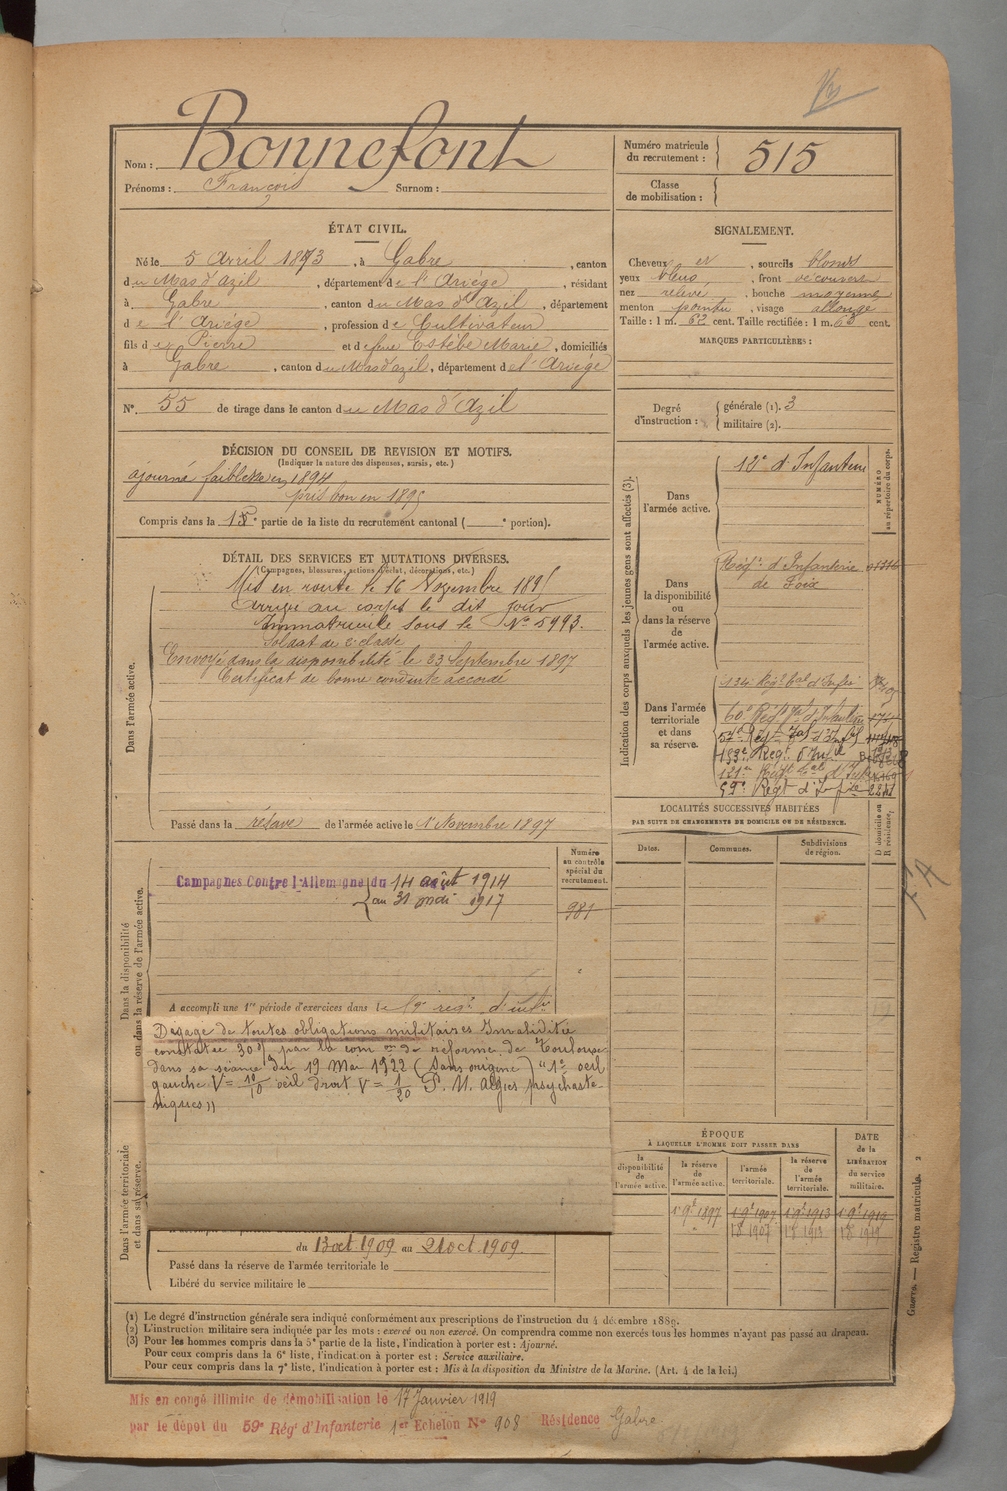 Nom : Bonnefont
Prénoms : François Surnom :
Numéro matricule
du recrutement : 515
Classe
de mobilisation :
ÉTAT CIVIL.
Né le 5 Avril 1873, à Gabre, canton
du Mas d'azil, département de l'Ariége, résidant
à Gabre, canton du Mas d'Azil, département
de l'Ariége, profession de Cultivateur
fils de Pierre et de feue Estèbe Marie, domiciliés
à Gabre, canton du Mas d'azil, département de l'Ariége
N° 55 de tirage dans le canton du Mas d'Azil
SIGNALEMENT.
Cheveux et, sourcils blonds
yeux bleus, front découvert
nez relevé, bouche moyenne
menton pointu, visage allongé
Taille : 1 m. 62 cent. Taille rectifiée : 1 m. 63 cent.
MARQUES PARTICULIÈRES :
Degré
d'instruction :
générale (1). 3
militaire (2).
DÉCISION DU CONSEIL DE REVISION ET MOTIFS.
(Indiquer la nature des dispenses, sursis, etc.)
ajourné faiblesse en 1894
pris bon en 1895
Compris dans la partie de la liste du recrutement cantonal ( ° portion).
DÉTAIL DES SERVICES ET MUTATIONS DIVERSES.
(Campagnes, blessures, actions d'éclat, décorations, etc.)
Dans l'armée active.
Mis en route le 16 Novembre 1895
Arrivé au corps le dit jour
Immatriculé sous le N° 5993.
Soldat de 2e classe
Envoyé dans la disponibilité le 23 Septembre 1897
Certificat de bonne conduite accordé
Passé dans la réserve de l'armée active le 1er Novembre 1897
Indication des corps auxquels les jeunes gens sont affectés (3).
NUMÉRO
au répertoire du corps.
Dans
l'armée active.
12e d'Infanterie
Dans
la disponibilité
ou
dans la réserve
de
l'armée active.
Régt d'Infanterie
de Foix
Dans l'armée
territoriale
et dans
sa réserve.
134e Régt tal d'Infie
60e Régt tal d'Infanterie
57e Régt tal d'Inf
183e Régt d'Inf
131e Régt tal d'Inf
59e Régt d'Infie
LOCALITÉS SUCCESSIVES HABITÉES
PAR SUITE DE CHANGEMENTS DE DOMICILE OU DE RÉSIDENCE.
Dates.
Communes.
Subdivisions
de région.
D domicile ou
R résidence.
Dans la disponibilité
ou dans la réserve de l'armée active.
Numéro
au contrôle
spécial du
recrutement.
981
Campagnes Contre l'Allemagne du 14 août 1914
au 31 mai 1917
A accompli une 1re période d'exercices dans le régt d'infie
Degagé de toutes obligations militaires Invalidité
constatée 30% par la com on de réforme de Toulouse
dans sa séance du 19 Mai 1922 (sans origine) "1° oeil
gauche V = 10/10 oeil droit V = 1/20 P. N. algies psychasté-
niques"
Dans l'armée territoriale
et dans sa réserve.
du 13 oct 1909 au 21 oct 1909.
Passé dans la réserve de l'armée territoriale le
Libéré du service militaire le
ÉPOQUE
À LAQUELLE L'HOMME DOIT PASSER DANS
la
disponibilité
de
l'armée active.
la réserve
de
l'armée active.
l'armée
territoriale.
la réserve
de
l'armée
territoriale.
DATE
de la
LIBÉRATION
du service
militaire.
1 9e 1897 1 9e 1907 1 9e 1913 1 9e 1919
1 8 1907 1 8 1913 1 8 1919
Guerre. — Registre matricule. 2
(1) Le degré d'instruction générale sera indiqué conformément aux prescriptions de l'instruction du 4 décembre 1889.
(2) L'instruction militaire sera indiquée par les mots : exercé ou non exercé. On comprendra comme non exercés tous les hommes n'ayant pas passé au drapeau.
(3) Pour les hommes compris dans la 5e partie de la liste, l'indication à porter est : Ajourné.
Pour ceux compris dans la 6e liste, l'indication à porter est : Service auxiliaire.
Pour ceux compris dans la 7e liste, l'indication à porter est : Mis à la disposition du Ministre de la Marine. (Art. 4 de la loi.)
Mis en congé illimité de démobilisation le 17 Janvier 1919
par le dépôt du 59e Régt d'Infanterie 1er Echelon N° 908 Résidence Gabre